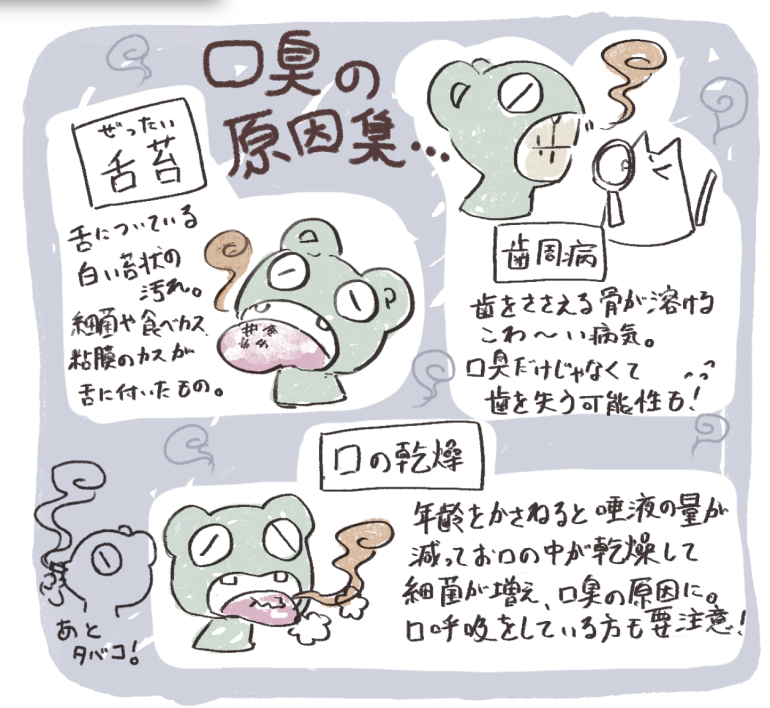 口臭の
原因集...
ぜったい
舌苔
舌についている
白い苔状の
汚れ。
細菌や食べカス
粘膜のカスが
舌に付いたもの。
歯周病
歯をささえる骨が溶ける
こわ〜い病気。
口臭だけじゃなくて
歯を失う可能性も!
口の乾燥
年齢をかさねると唾液の量が
減ってお口の中が乾燥して
細菌が増え、口臭の原因に。
口呼吸をしている方も要注意!
あと
タバコ!